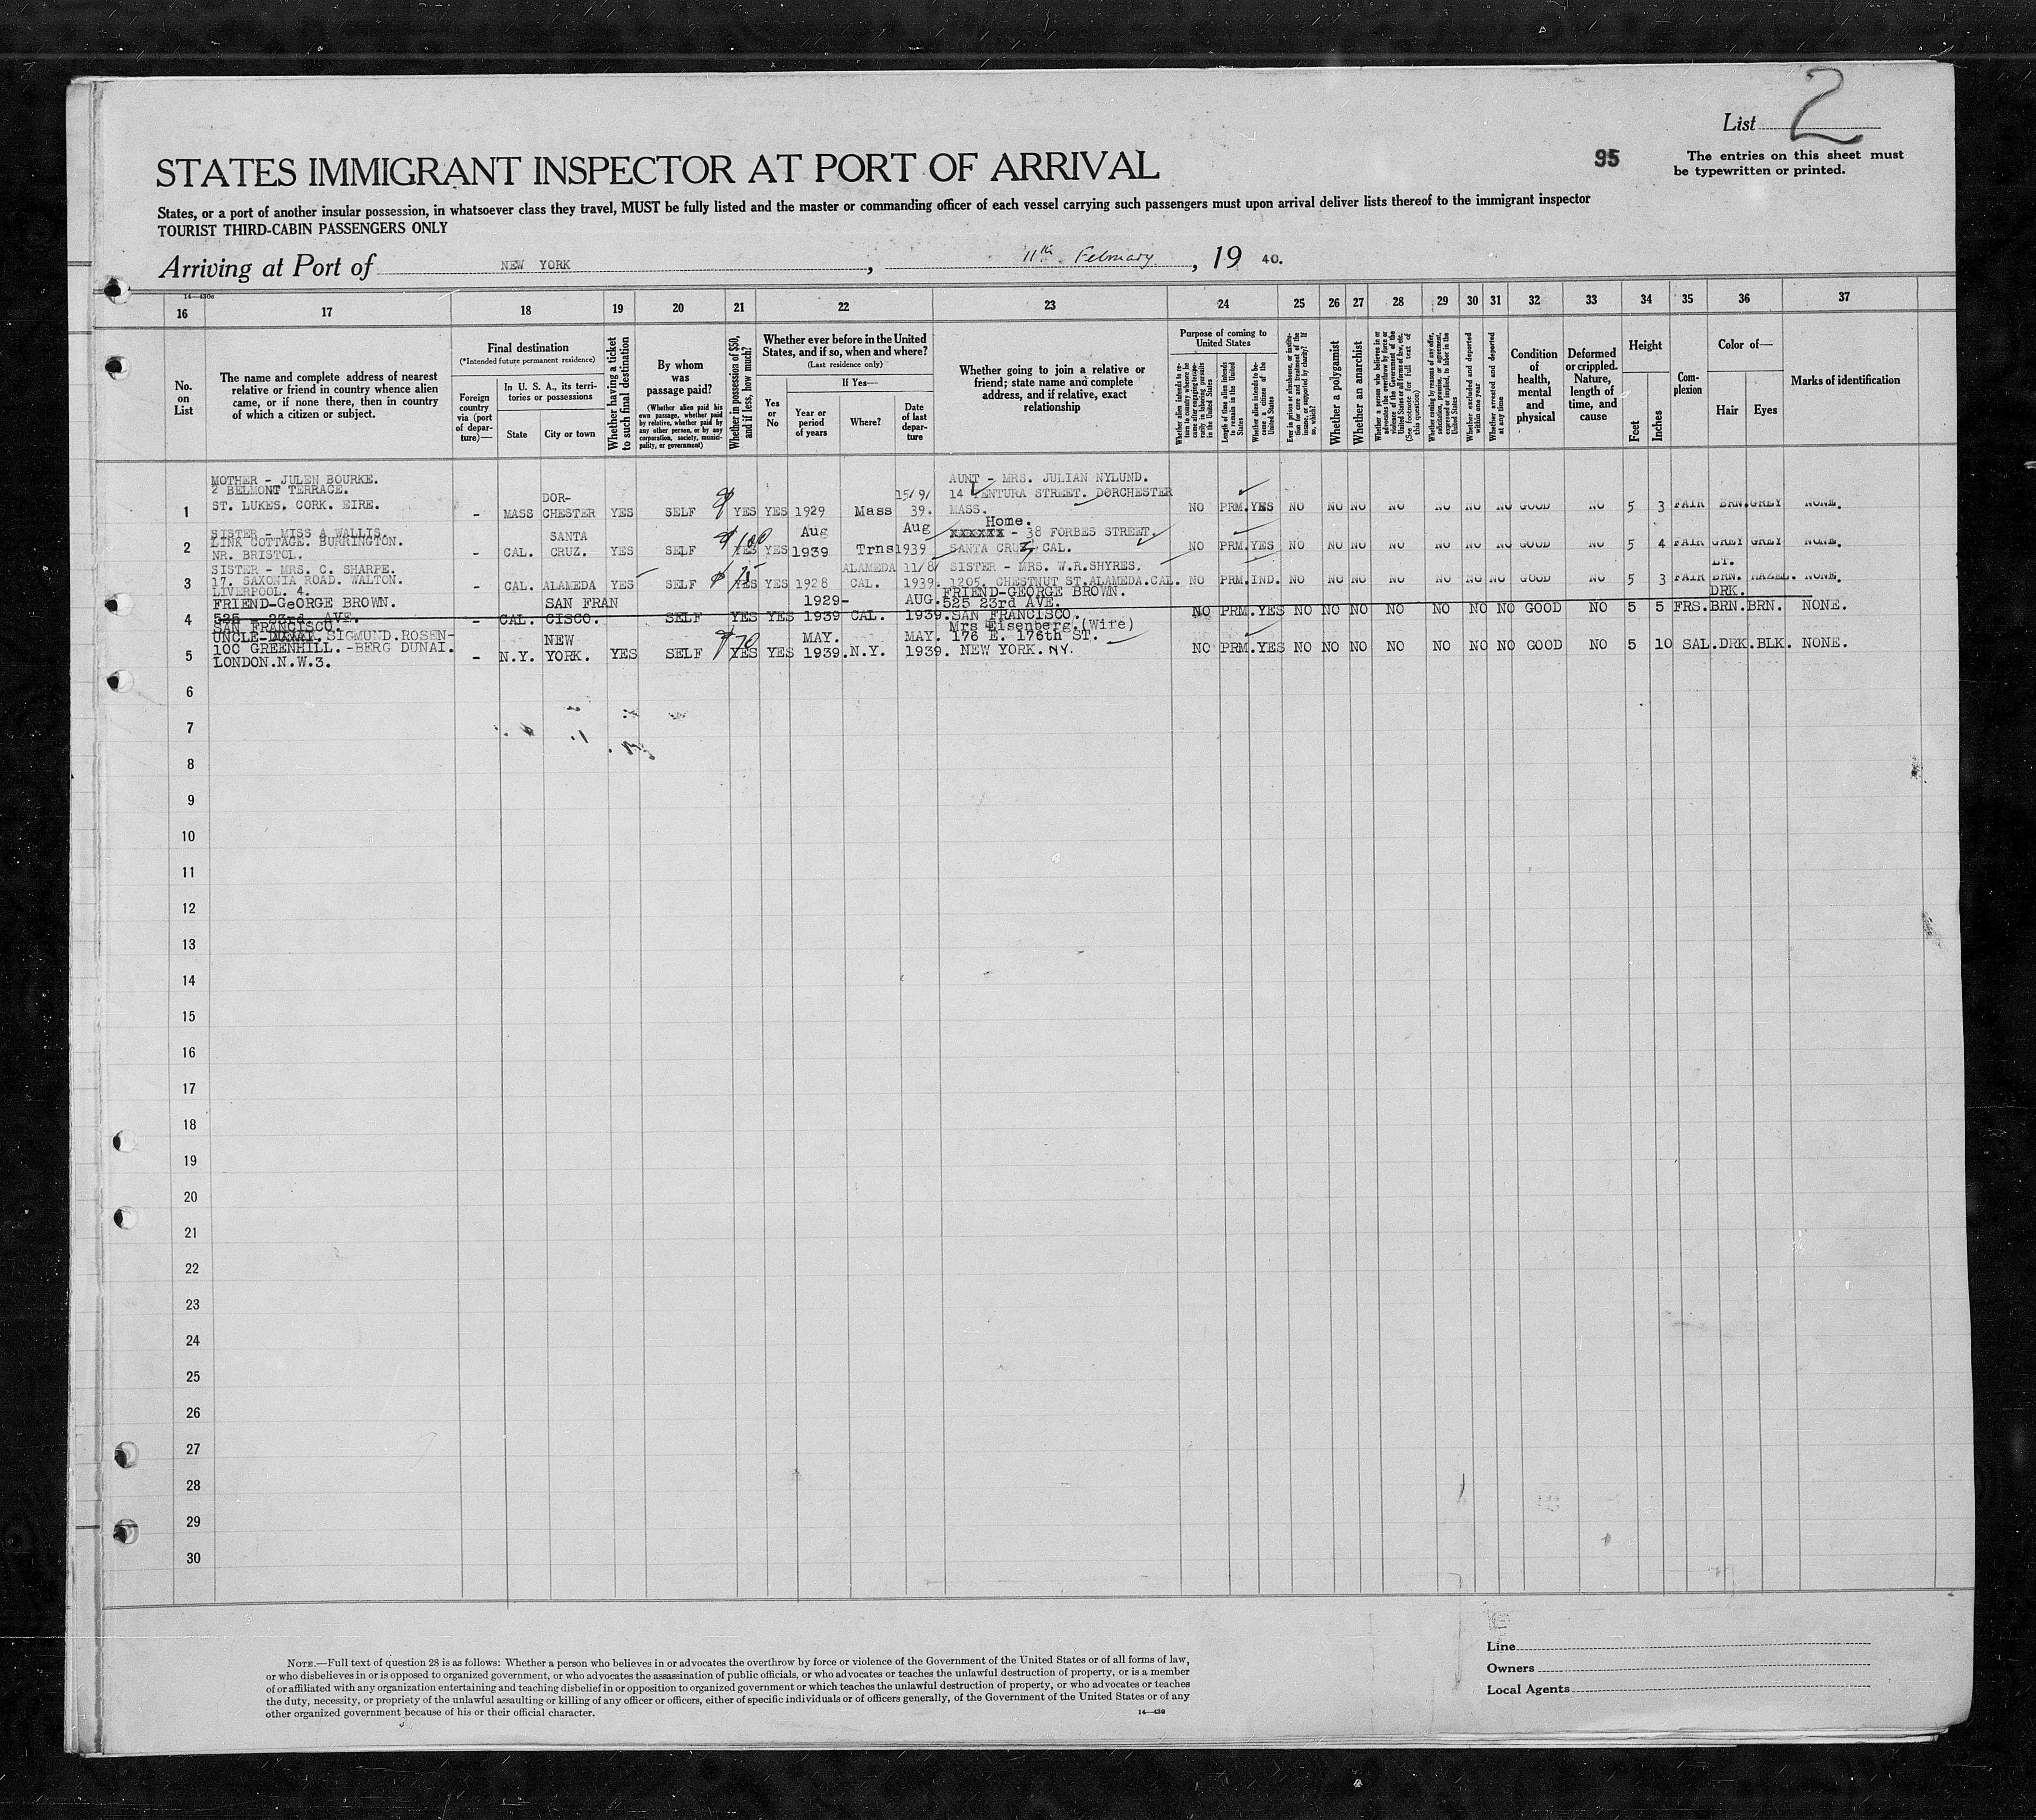 List 2
95
The entries on this sheet must
be typewritten or printed.
STATES IMMIGRANT INSPECTOR AT PORT OF ARRIVAL
States, or a port of another insular possession, in whatsoever class they travel, MUST be fully listed and the master or commanding officer of each vessel carrying such passengers must upon arrival deliver lists thereof to the immigrant inspector
TOURIST THIRD-CABIN PASSENGERS ONLY
Arriving at Port of NEW YORK, 11th February, 19 40.
14—430e
16 17 18 19 20 21 22 23 24 25 26 27 28 29 30 31 32 33 34 35 36 37
No. on List
The name and complete address of nearest
relative or friend in country whence alien
came, or if none there, then in country
of which a citizen or subject.
Final destination
(*Intended future permanent residence)
Foreign country via (port of departure)—
In U. S. A., its territories or possessions
State
City or town
Whether having a ticket to such final destination
By whom was passage paid?
(Whether alien paid his own passage, whether paid by relative, whether paid by any other person, or by any corporation, society, municipality, or government)
Whether in possession of $50, and if less, how much?
Whether ever before in the United
States, and if so, when and where?
(Last residence only)
Yes or No
If Yes—
Year or period of years
Where?
Date of last departure
Whether going to join a relative or
friend; state name and complete
address, and if relative, exact
relationship
Purpose of coming to United States
Whether alien intends to return to country whence he came after engaging temporarily in laboring pursuits in the United States
Length of time alien intends to remain in the United States
Whether alien intends to become a citizen of the United States
Ever in prison or almshouse, or institution for care and treatment of the insane, or supported by charity? If so, which?
Whether a polygamist
Whether an anarchist
Whether a person who believes in or advocates the overthrow by force or violence of the Government of the United States or all forms of law, etc. (See footnote for full text of this question)
Whether coming by reasons of any offer, solicitation, promise, or agreement, expressed or implied, to labor in the United States
Whether excluded and deported within one year
Whether arrested and deported at any time
Condition of health, mental and physical
Deformed or crippled. Nature, length of time, and cause
Height
Feet
Inches
Complexion
Color of—
Hair
Eyes
Marks of identification
MOTHER - JULEN BOURKE.
2 BELMONT TERRACE.
ST. LUKES. CORK. EIRE.
1 - MASS DOR-CHESTER YES SELF YES YES 1929 Mass 15/9/39. AUNT - MRS. JULIAN NYLUND.
14 VENTURA STREET. DORCHESTER
MASS. NO PRM. YES NO NO NO NO NO NO NO GOOD NO 5 3 FAIR BRN. GREY NONE.
SISTER - MISS A WALLIS.
LINK COTTAGE. BURRINGTON.
NR. BRISTOL.
2 - CAL. SANTA CRUZ. YES SELF $100 YES YES Aug 1939 Trns Aug 1939 Home.
xxxxxx - 38 FORBES STREET.
SANTA CRUZ, CAL. NO PRM. YES NO NO NO NO NO NO NO GOOD NO 5 4 FAIR GREY GREY NONE.
SISTER - MRS. C. SHARPE.
17. SAXONIA ROAD. WALTON.
LIVERPOOL. 4.
3 - CAL. ALAMEDA YES SELF YES YES 1928 ALAMEDA CAL. 11/8/1939. SISTER - MRS. W.R.SHYRES.
1205. CHESTNUT ST.ALAMEDA.CAL. NO PRM. IND. NO NO NO NO NO NO NO GOOD NO 5 3 FAIR LT. BRN. HAZEL. NONE.
FRIEND-GeORGE BROWN.
525 - 23rd. AVE.
SAN FRANCISCO.
4 - CAL. SAN FRAN CISCO. SELF YES YES 1929-1939 CAL. AUG. 1939. FRIEND-GEORGE BROWN.
525 23rd AVE.
SAN FRANCISCO. NO PRM. YES NO NO NO NO NO NO NO GOOD NO 5 5 FRS. BRN. BRN. NONE.
UNCLE-DUNAI. SIGMUND.ROSEN-
100 GREENHILL. -BERG DUNAI.
LONDON.N.W.3.
5 - N.Y. NEW YORK. YES SELF $70 YES YES MAY. 1939. N.Y. MAY. 1939. Mrs Eisenberg.(Wife)
176 E. 176th ST.
NEW YORK. NY. NO PRM. YES NO NO NO NO NO NO NO GOOD NO 5 10 SAL. DRK. DRK. BLK. NONE.
6
7
8
9
10
11
12
13
14
15
16
17
18
19
20
21
22
23
24
25
26
27
28
29
30
NOTE.—Full text of question 28 is as follows: Whether a person who believes in or advocates the overthrow by force or violence of the Government of the United States or of all forms of law,
or who disbelieves in or is opposed to organized government, or who advocates the assassination of public officials, or who advocates or teaches the unlawful destruction of property, or is a member
of or affiliated with any organization entertaining and teaching disbelief in or opposition to organized government or which teaches the unlawful destruction of property, or who advocates or teaches
the duty, necessity, or propriety of the unlawful assaulting or killing of any officer or officers, either of specific individuals or of officers generally, of the Government of the United States or of any
other organized government because of his or their official character.
14—430
Line
Owners
Local Agents